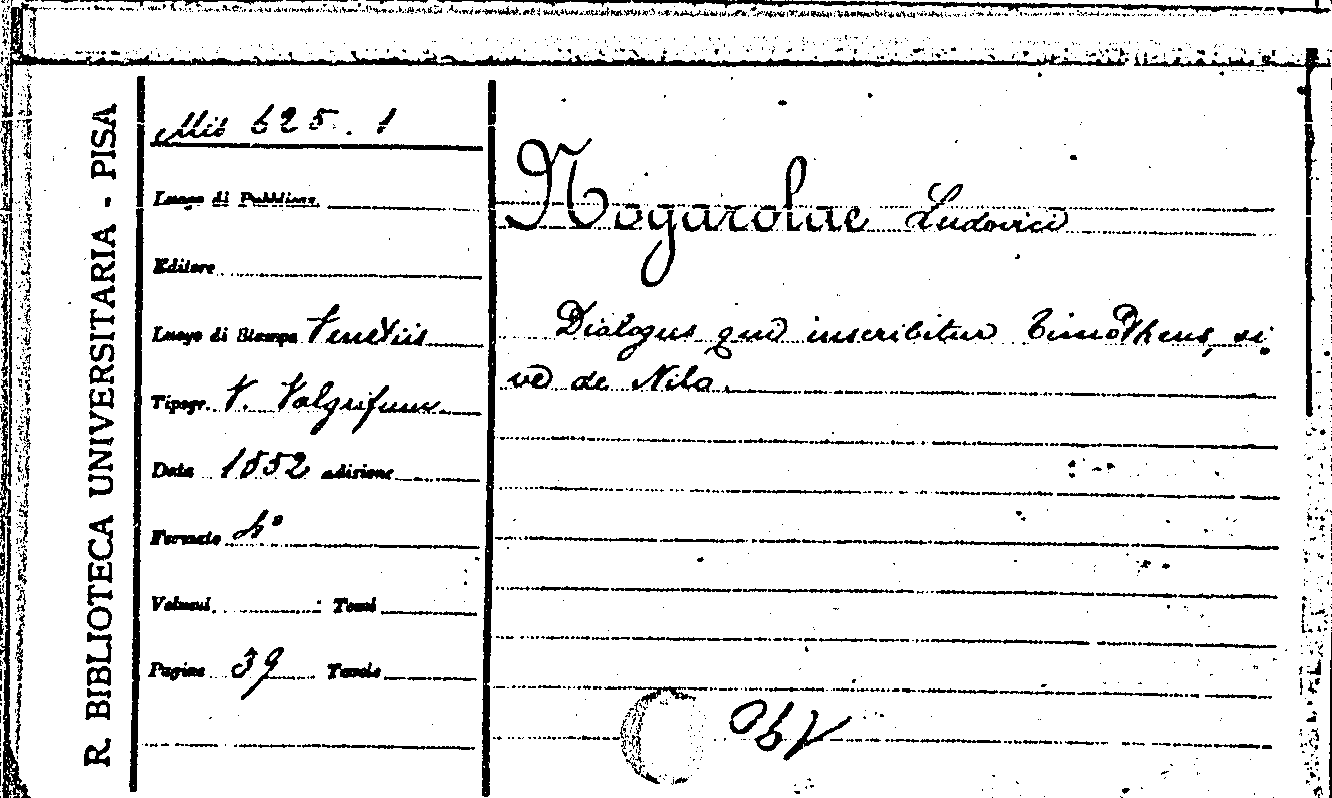 R. BIBLIOTECA UNIVERSITARIA - PISA
Mis 625. 1
Luogo di Pubblicaz.
Editore
Luogo di Stampa Venetiis
Tipogr. V. Valgrifium
Data 1552 edizione
Formato 4°
Volumi Tomi
Pagine 39 Tavole
Nogarolae Ludovici
Dialogus qui inscribitur Timotheus, si
ve de Nilo.